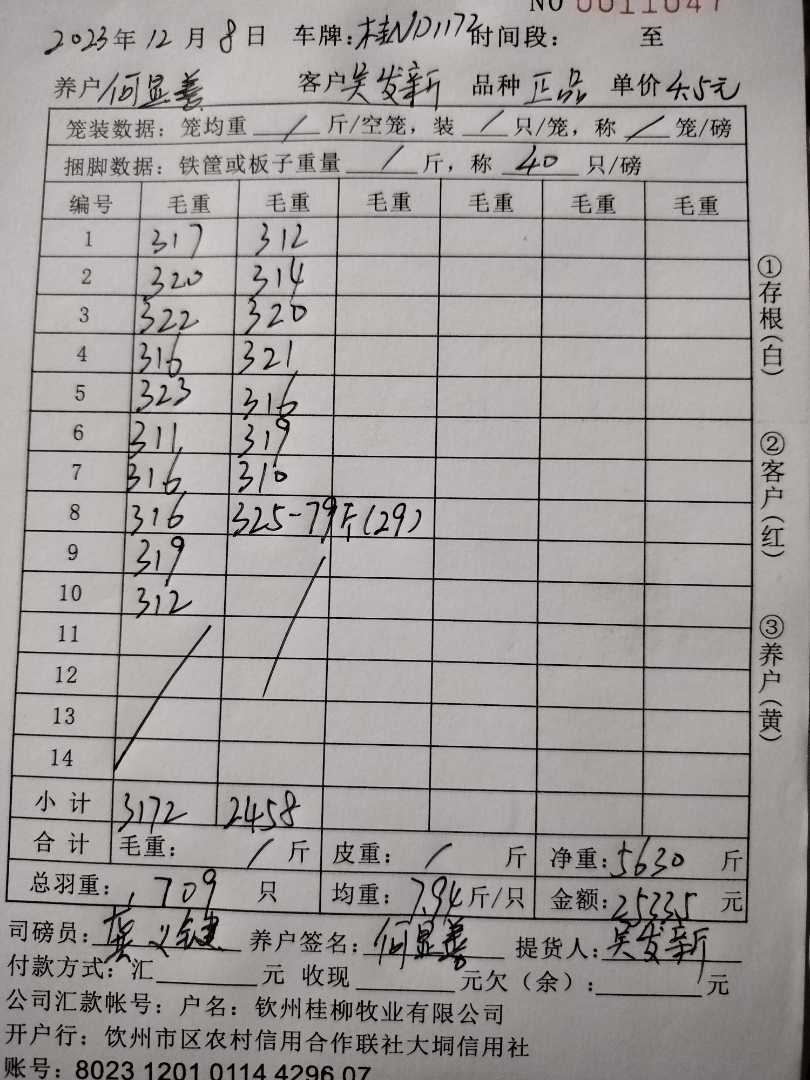 NO 0011047
2023年12月8日 车牌:桂ND1172 时间段: 至
养户何显善 客户吴发新 品种正品 单价4.5元
笼装数据:笼均重 / 斤/空笼,装 / 只/笼,称 / 笼/磅
捆脚数据:铁筐或板子重量 / 斤,称 40 只/磅
编号 毛重 毛重 毛重 毛重 毛重 毛重
1 317 312
2 320 314
3 322 320
4 316 321
5 323 316
6 311 319
7 316 310
8 316 325-79斤(29)
9 319
10 312
11
12
13
14
小计 3172 2458
合计 毛重: / 斤 皮重: / 斤 净重:5630 斤
总羽重: 709 只 均重:7.94斤/只 金额:25335 元
司磅员: 养户签名:何显善 提货人:吴发新
付款方式:汇 元 收现 元欠(余): 元
公司汇款帐号:户名:钦州桂柳牧业有限公司
开户行:饮州市区农村信用合作联社大垌信用社
账号:8023 1201 0114 4296 07
①存根(白)
②客户(红)
③养户(黄)